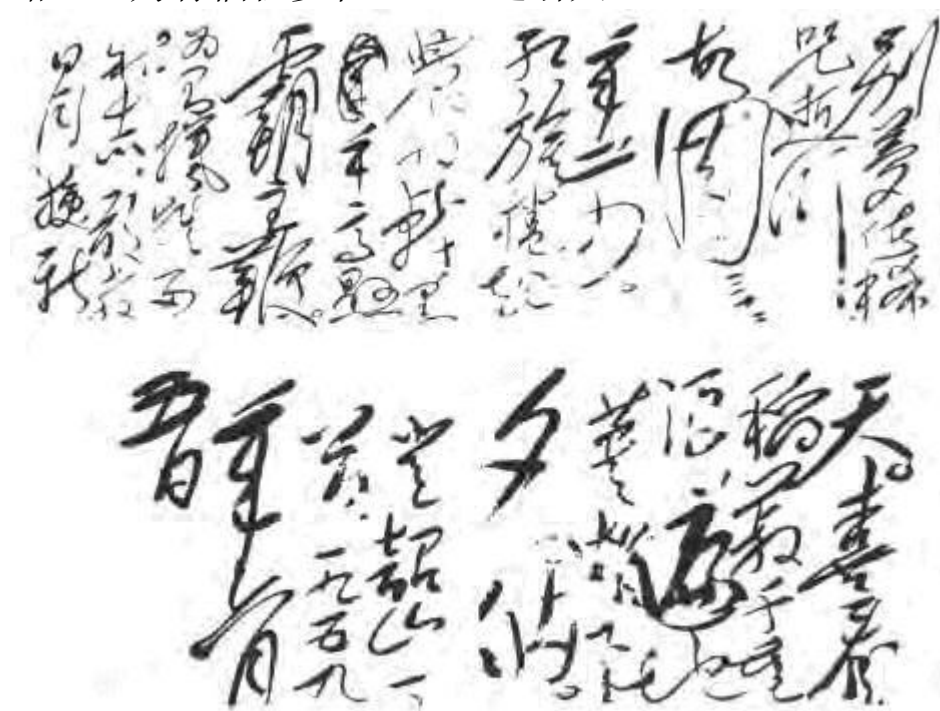 别梦依稀
咒逝川
故園三十二
年前。
红旗捲起
農奴戟黑
手高懸
霸主鞭。
为有犧牲多
壮志敢教
日月換新
天。喜看
稻菽千重
浪，遍地
英雄下
夕烟。
登韶山一
首。一九五九
年六月